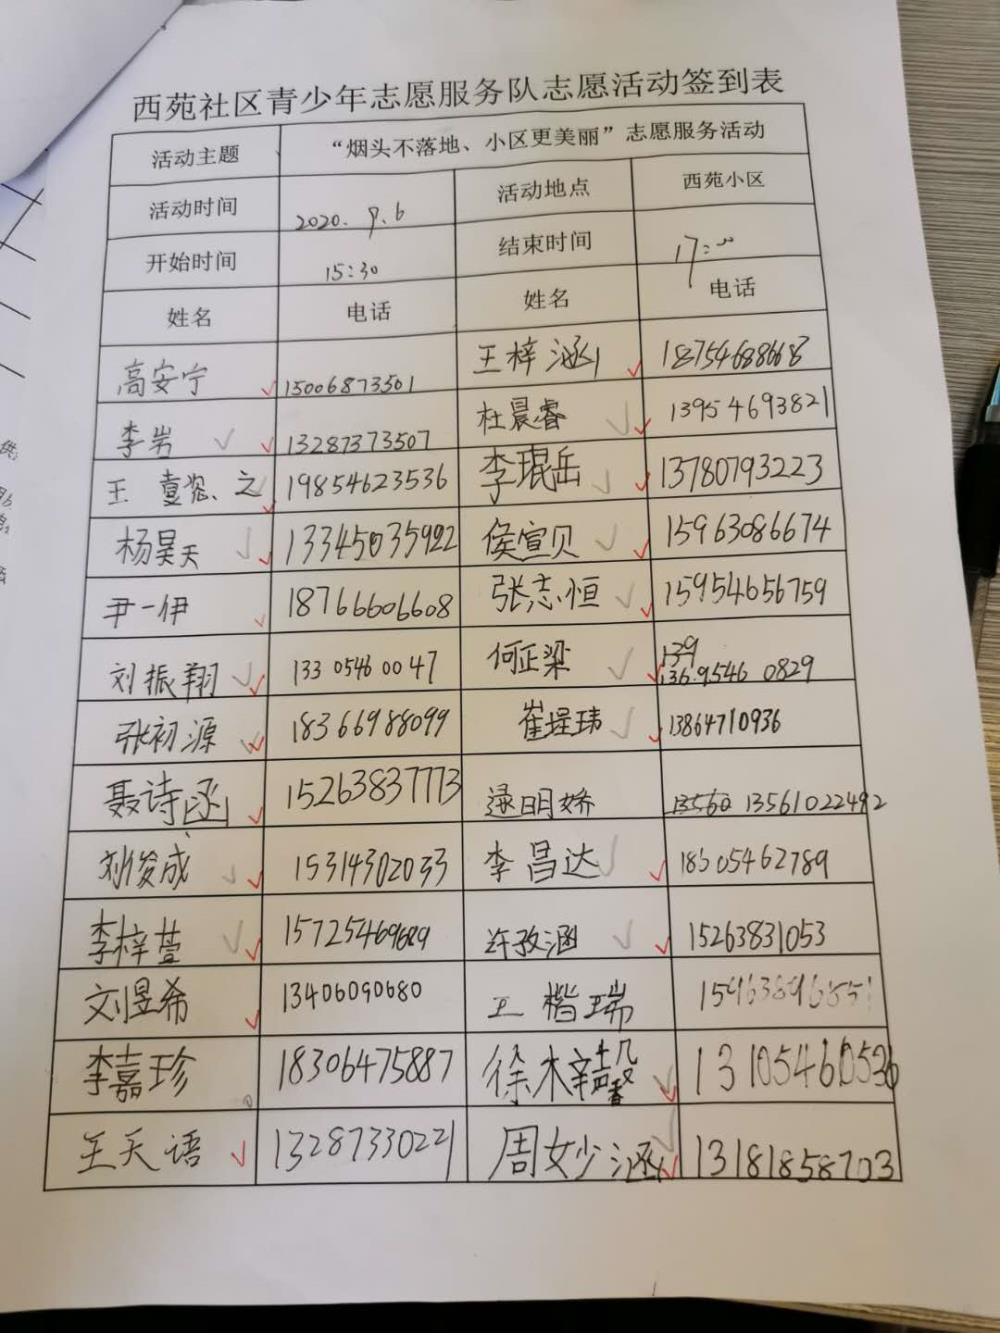 西苑社区青少年志愿服务队志愿活动签到表
活动主题 “烟头不落地、小区更美丽”志愿服务活动
活动时间 2020.9.6 活动地点 西苑小区
开始时间 15:30 结束时间 17:00
姓名 电话 姓名 电话
高安宁 15006873501 王梓涵 18754688668
李岩 13287373507 杜晨睿 13954693821
王 之 19854623536 李琨岳 13780793223
杨昊天 13345035922 侯宣贝 15963086674
尹一伊 18766606608 张志恒 15954656759
刘振翔 133 0546 0047 何正梁 139
9546 0829
张初源 18366988099 崔珵玮 13864710936
聂诗函 15263837773 逯明娇 13561022492
刘俊成 15314302033 李昌达 18505462789
李梓萱 15725469689 许孜涵 15263831053
刘昱希 13406090680 王楷瑞
李嘉珍 18306475887 徐梓馨 13105460536
王天语 13287330221 周妙涵 13181858703